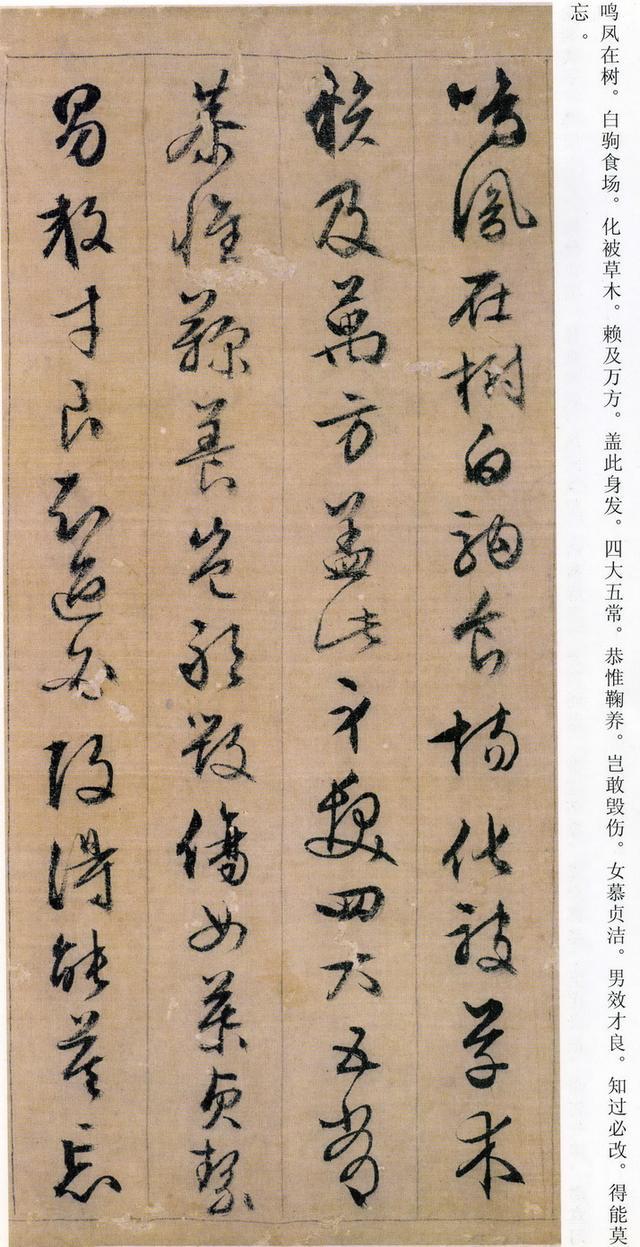 鸣凤在树。白驹食场。化被草木。赖及万方。盖此身发。四大五常。恭惟鞠养。岂敢毁伤。女慕贞洁。男效才良。知过必改。得能莫
忘。
鳴鳳在樹白駒食場化被草木
賴及萬方蓋此身髮四大五常
恭惟鞠養豈敢毀傷女慕貞絜
男效才良知過必改得能莫忘